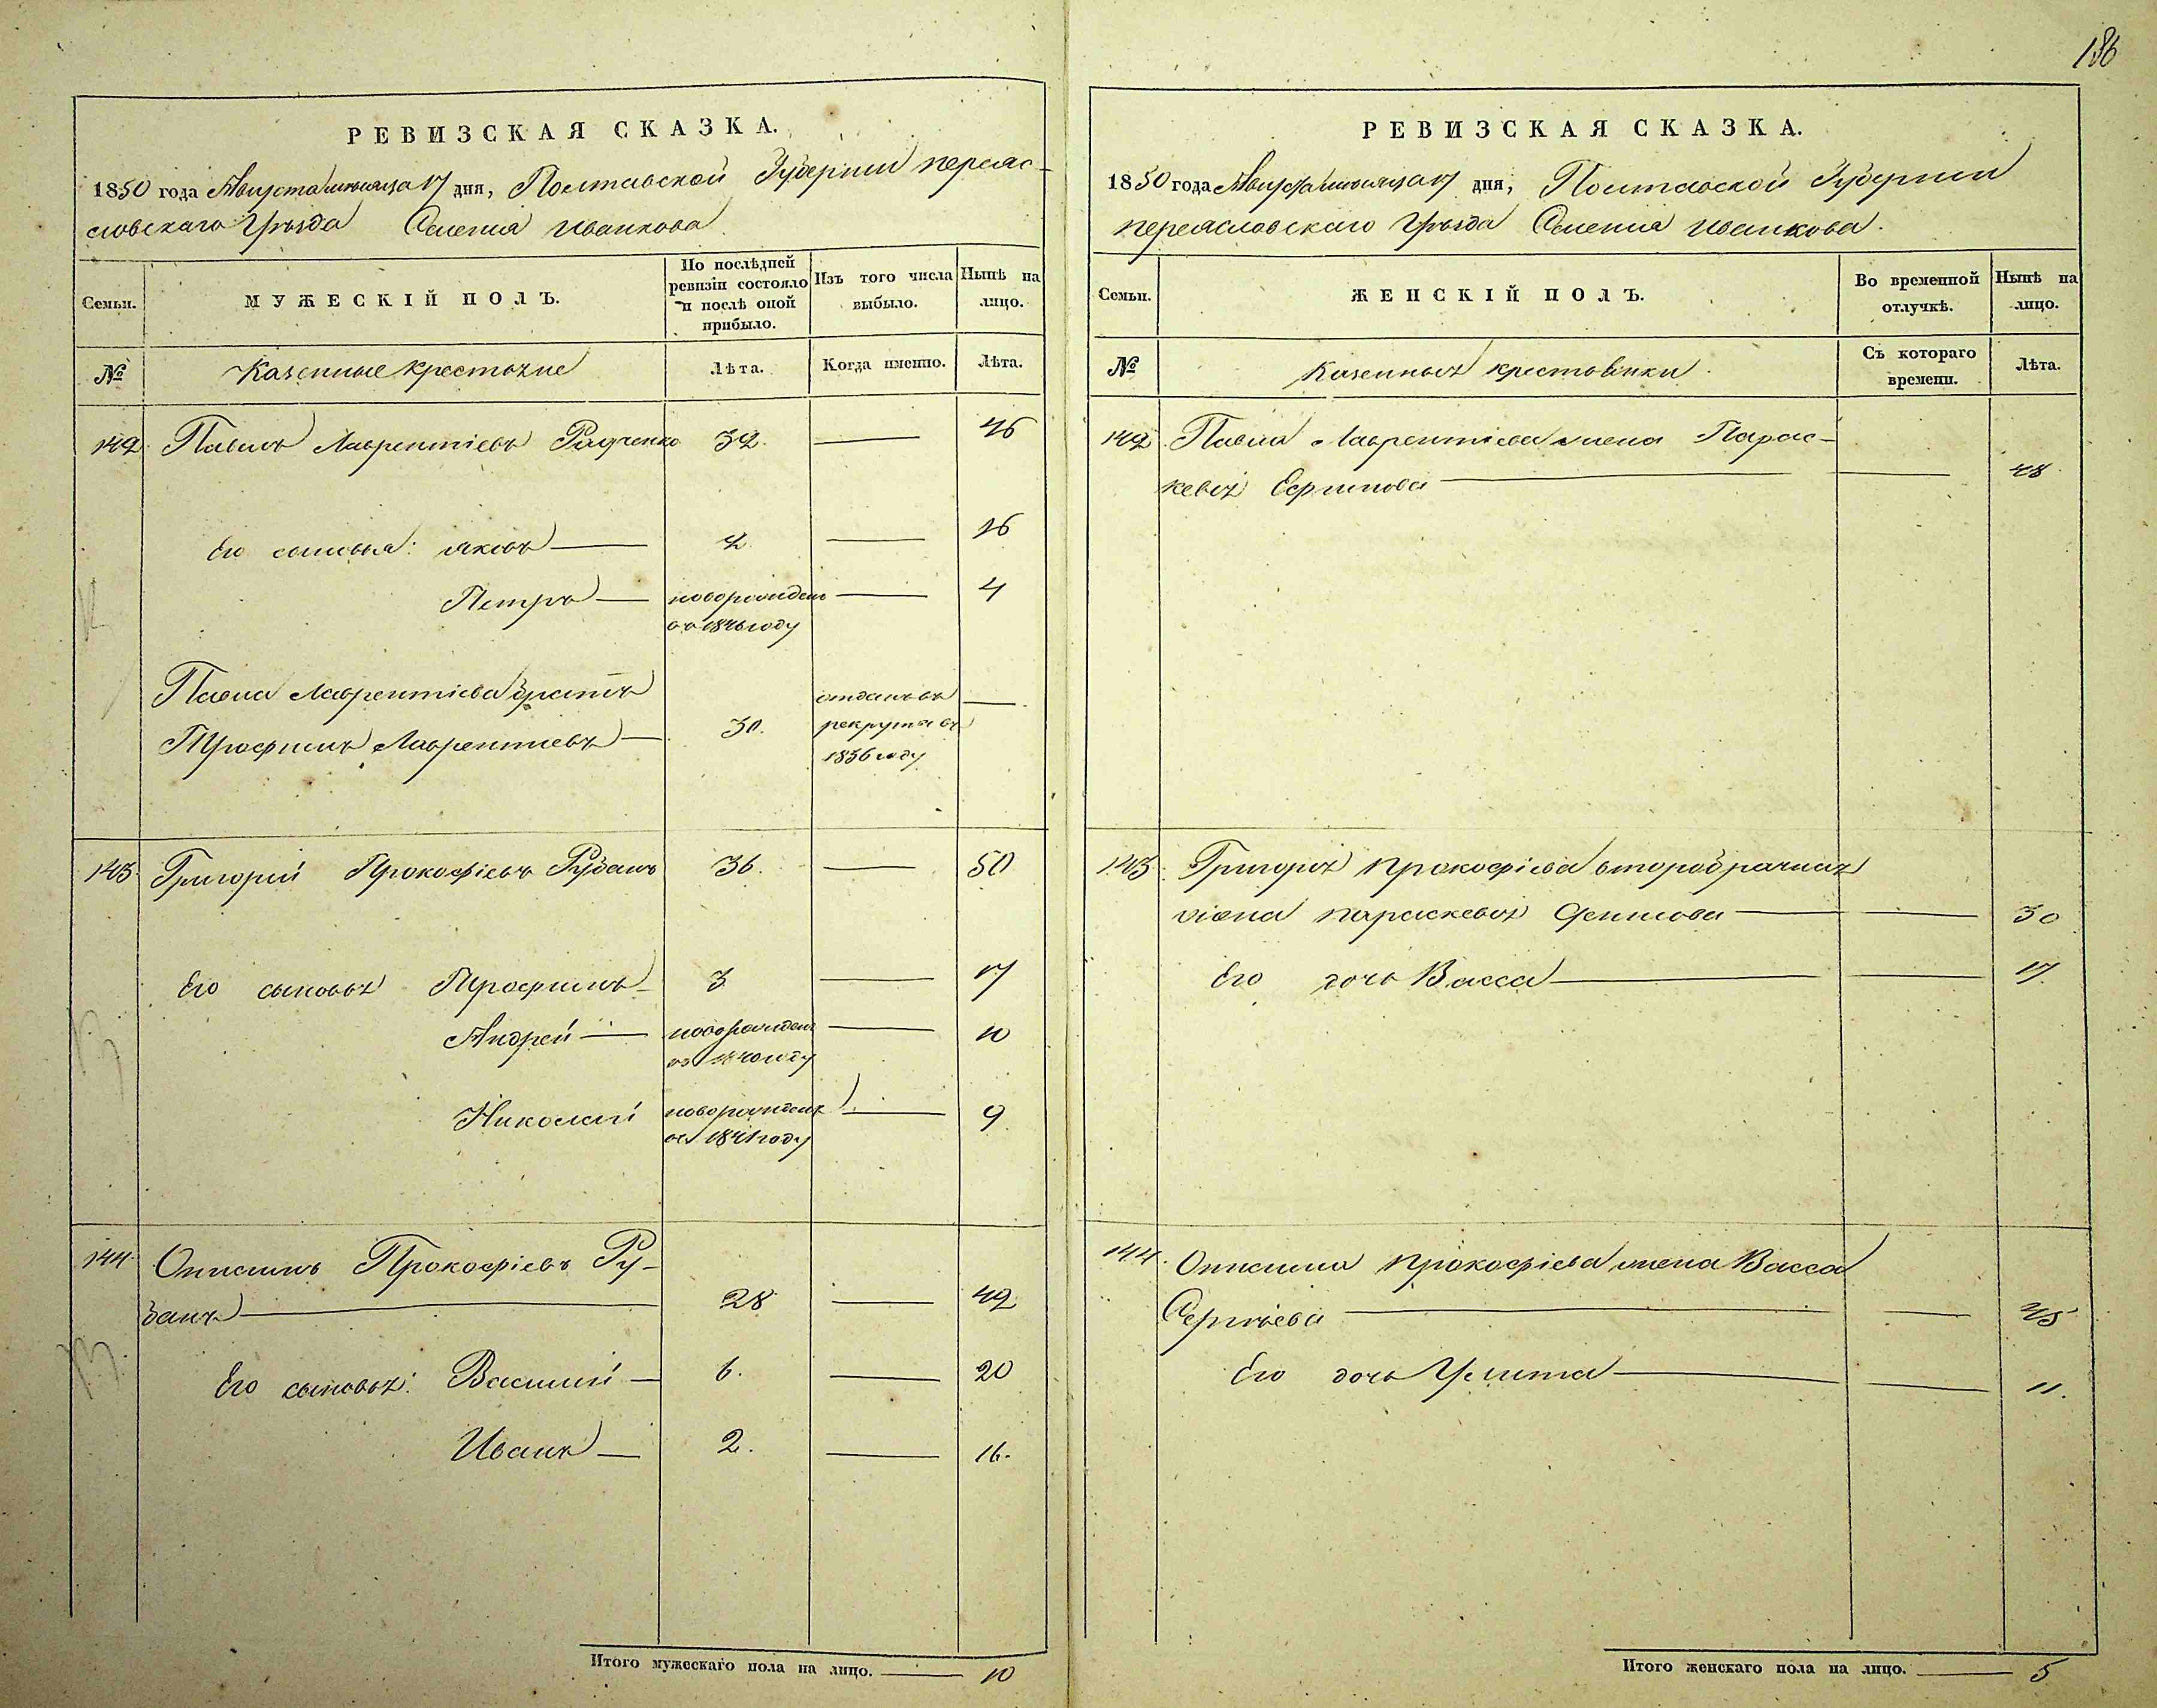 186
РЕВИЗСКАЯ СКАЗКА.
1850 года Августа месяца 17 дня, Полтавской Губернии переяс-
словскаго Уѣзда Селения Иванкова
Семьи.
МУЖЕСКІЙ ПОЛЪ.
По послѣдней ревизіи состояло и послѣ оной прибыло.
Изъ того числа выбыло.
Нынѣ на лицо.
№
Казенные крестьяне
Лѣта.
Когда именно.
Лѣта.
142. Павелъ Лаврентіевъ Радченко 32. 46
Его сыновья: яковъ 2. 16
Петръ новорожден 4
въ 1846 году
Павла Лаврентіева братъ отданъ въ
Трофимъ Лаврентіевъ 30. рекруты въ
1836 году
143. Григорій Прокофіевъ Рубанъ 36. 50
Его сыновья Трофимъ 3 17
Андрей новорожден 10
въ 1840 году
Николай новорожденъ 9
въ 1841 году
144. Онисимъ Прокофіевъ Ру-
банъ 28 42
Его сыновья: Василий 6. 20
Иванъ 2. 16.
Итого мужескаго пола на лицо. 10
РЕВИЗСКАЯ СКАЗКА.
1850 года Августа месяца 17 дня, Полтавской Губернии
переясловскаго Уѣзда Селения иванкова.
Семьи.
ЖЕНСКІЙ ПОЛЪ.
Во временной отлучкѣ.
Нынѣ на лицо.
№
Казенныя крестьянки.
Съ котораго времени.
Лѣта.
142. Павла Лаврентіева жена Парас-
кевія 48.
143. Григорія прокофіева второбрачная
жена параскевія 30
Его дочь Васса 17.
144. Онисима прокофіева жена Васса
Сергѣева 45
Его дочь Улита 11.
Итого женскаго пола на лицо. 5